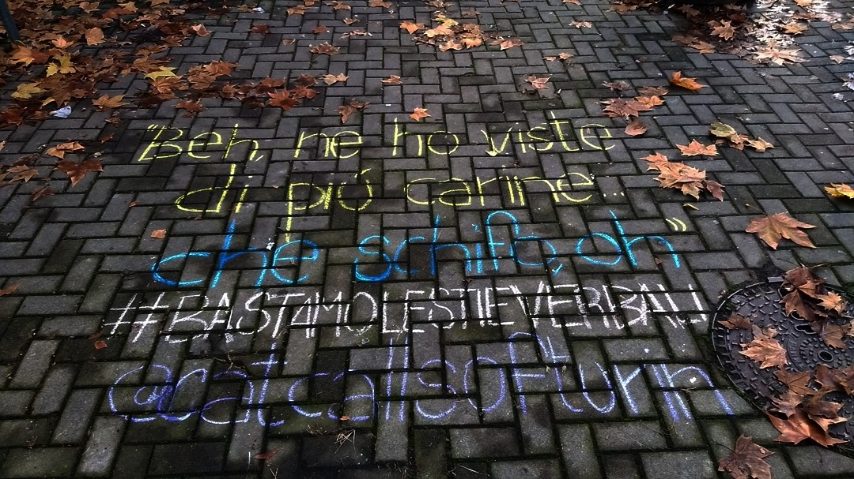 "Beh, ne ho viste
di più carine...
che schifo, oh"
#BASTAMOLESTIEVERBALI
@catcallsofturin